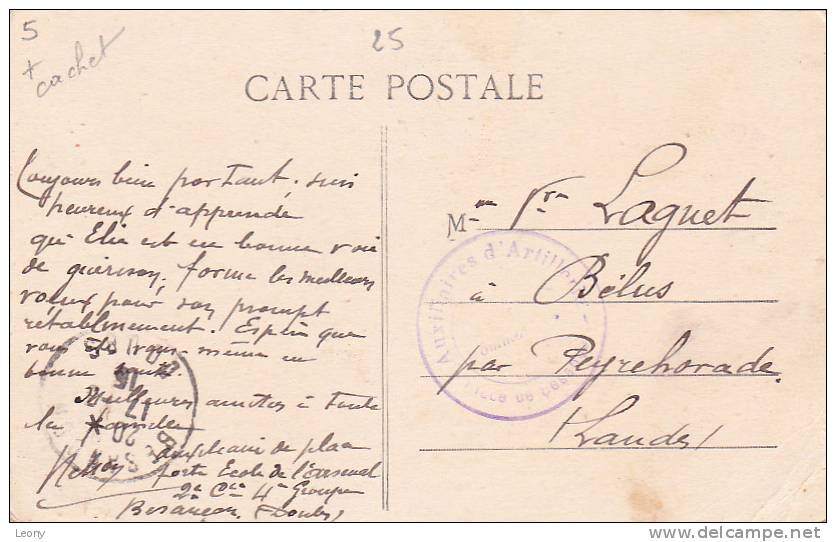 5
+ cachet
25
CARTE POSTALE
Toujours bien portant, suis
heureux d'apprendre
qu'Elie est en bonne voie
de guérison, forme les meilleurs
vœux pour son prompt
rétablissement. Espère que
vous êtes vous-même en
bonne santé.
Meilleures amitiés à toute
la famille
de place
forte Ecole de l'arsenal
2e Cie 4e Groupe
Besançon (Doubs)
Mme Vve Laguet
à Bélus
par Peyrehorade
(Landes)
Auxiliaires d'Artillerie
Place de Besançon
Leory
delcampe.net